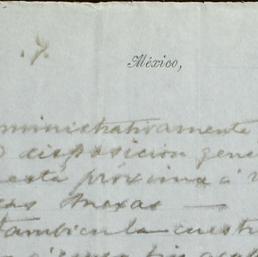 México,
ministrativamente
disposicion gene
está próxima á
cas Anexas —
tambien la cuest